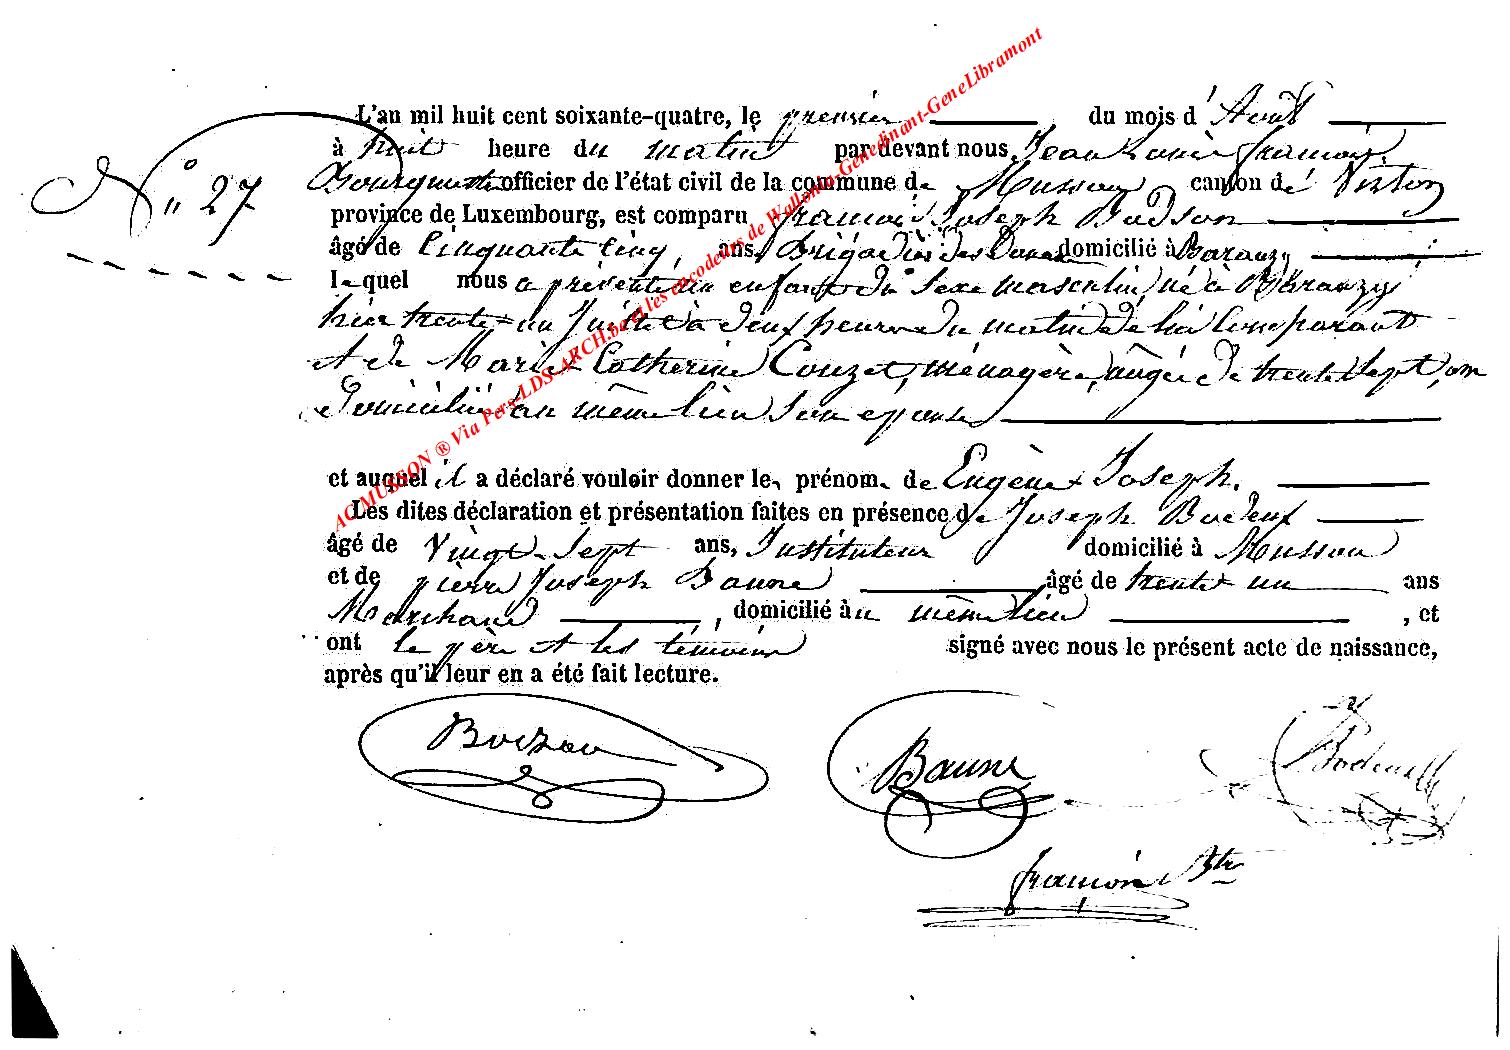 L'an mil huit cent soixante-quatre, le premier du mois d'Août
à huit heure du matin par devant nous Jean Louis François
officier de l'état civil de la commune de Musson canton de Virton
N° 27
province de Luxembourg, est comparu François Joseph
âgé de Cinquante Cinq, ans, Brigadier des Douanes domicilié à Baranzy
lequel nous a présenté un enfant du sexe masculin, né à Baranzy
hier trente-un Juillet à deux heures du matin de lui Comparant
et de Marie Catherine Couzet, ménagère, âgée de trente sept, ans
domiciliée au même lieu son épouse
et auquel il a déclaré vouloir donner le, prénom, de Eugène Joseph.
Les dites déclaration et présentation faites en présence de Joseph
âgé de Vingt-Sept ans, Instituteur domicilié à Musson
et de pierre Joseph Baune âgé de trente un ans
Marchand, domicilié au même lieu, et
ont le père et les témoins signé avec nous le présent acte de naissance,
après qu'il leur en a été fait lecture.
Baune
françois
AC MUSSON ® Via Pers-LDS-ARCH.be et les encodeurs de Wallonia-Genedinant-GeneLibramont